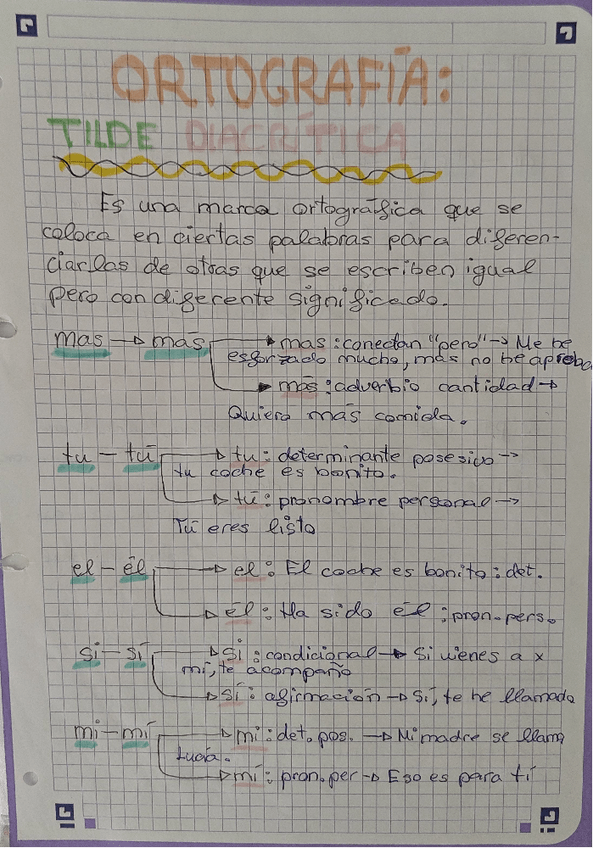 ORTOGRAFÍA:
TILDE DIACRÍTICA
Es una marca ortográfica que se
coloca en ciertas palabras para diferen-
ciarlas de otras que se escriben igual
pero con diferente significado.
mas → más → mas : conectan "pero" → Me he
esforzado mucho, mas no he aprobado
→ más : adverbio cantidad →
Quiero más comida.
tu - tú → tu : determinante posesivo →
tu coche es bonito.
→ tú : pronombre personal →
Tú eres listo
el - él → el : El coche es bonito : det.
→ él : Ha sido él : pron. pers.
si - sí → Si : condicional → Si vienes a x
mí, te acompaño
→ Sí : afirmación → Sí, te he llamado
mi - mí → mi : det. pos. → Mi madre se llama
Lucía.
→ mí : pron. per → Eso es para tí